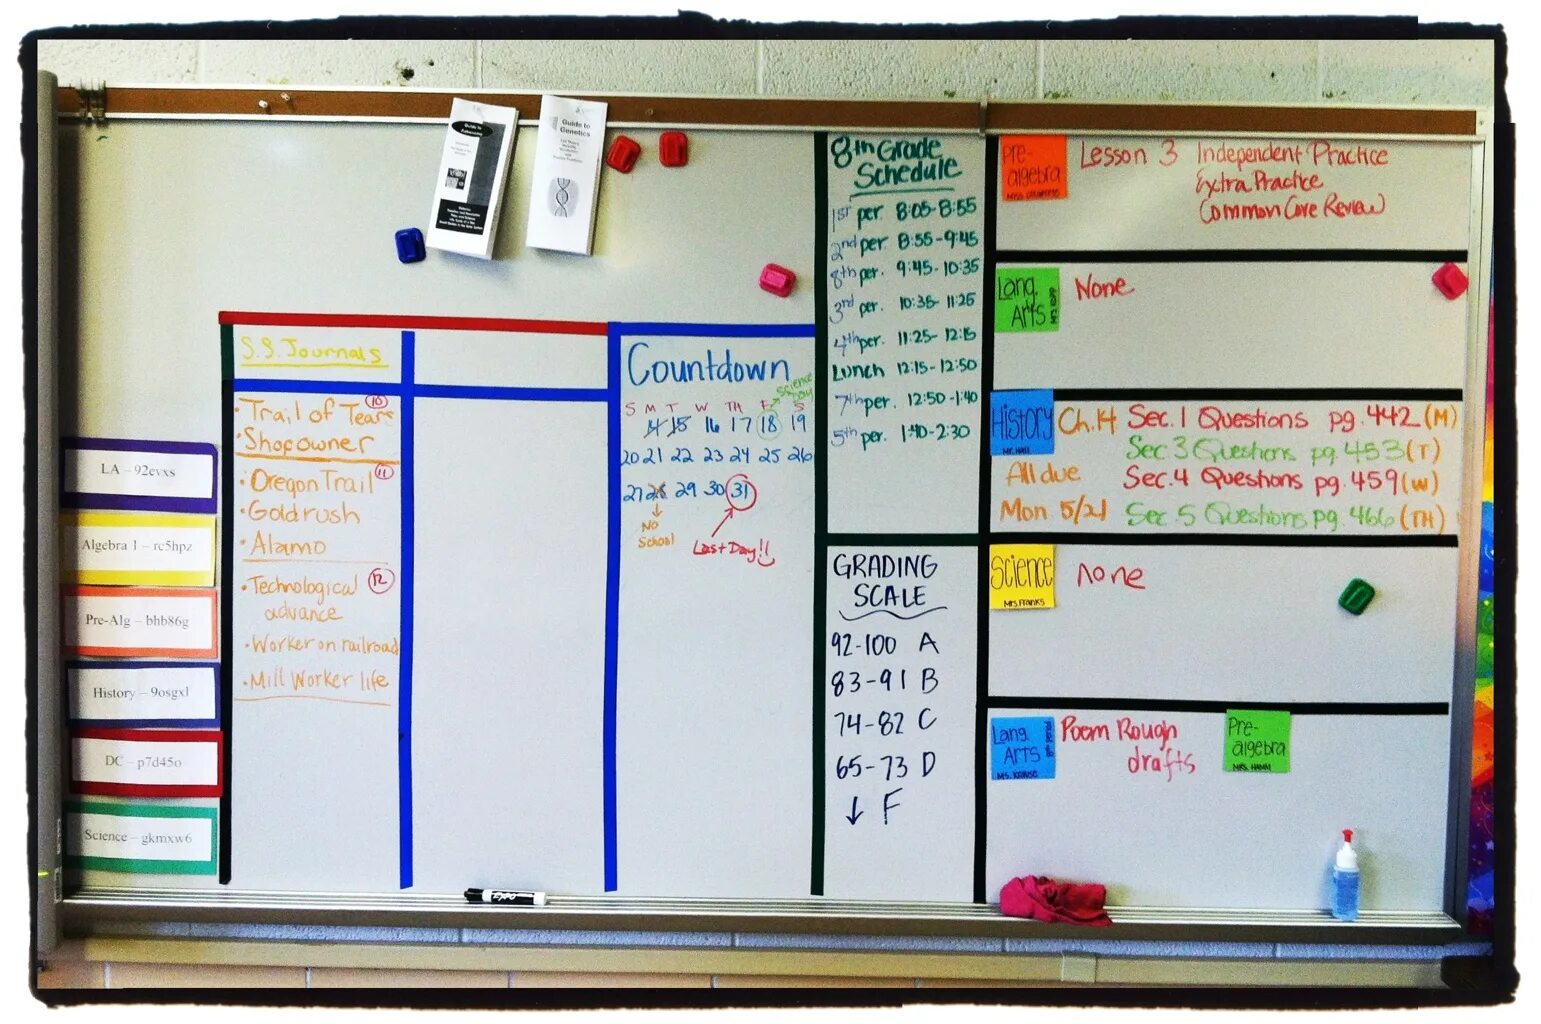 Guide to
Guide to
Genetics
LA – 92evxs
Algebra 1 – rc5hpz
Pre-Alg – bhb86g
History – 9osgxl
DC – p7d45o
Science – gkmxw6
S.S. Journals
• Trail of Tears 10
• Shopowner
• Oregon Trail 11
• Goldrush
• Alamo
• Technological 12
advance
• Worker on railroad
• Mill Worker life
Countdown
Science
Day
S M T W TH F S
14 15 16 17 18 19
20 21 22 23 24 25 26
27 28 29 30 31
No
School
Last Day!!
8th Grade
Schedule
1st per. 8:05-8:55
2nd per. 8:55-9:45
8th per. 9:45-10:35
3rd per. 10:35-11:25
4th per. 11:25-12:15
Lunch 12:15-12:50
7th per. 12:50-1:40
5th per. 1:40-2:30
GRADING
SCALE
92-100 A
83-91 B
74-82 C
65-73 D
↓ F
Pre-
algebra
Lesson 3 Independent Practice
Extra Practice
Common Core Review
Lang.
Arts
None
History
Mr. Hall
Ch. 14 Sec. 1 Questions pg. 442 (M)
Sec 3 Questions pg. 453 (T)
All due Sec. 4 Questions pg. 459 (W)
Mon 5/21 Sec. 5 Questions pg. 466 (TH)
Science
Mrs. Franks
None
Lang.
Arts
Ms. Krause
Poem Rough
drafts
Pre-
algebra
Mrs. Hamm
EXPO